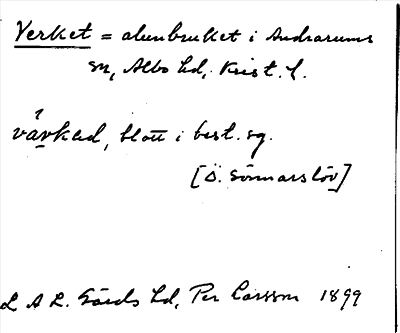 Verket = alunbruket i Andrarums
sn, Albo hd, Krist. l.
vàrked, blott i best. sg.
[Ö. Sönnarslöv]
L A L. Gärds hd, Per Larsson 1899